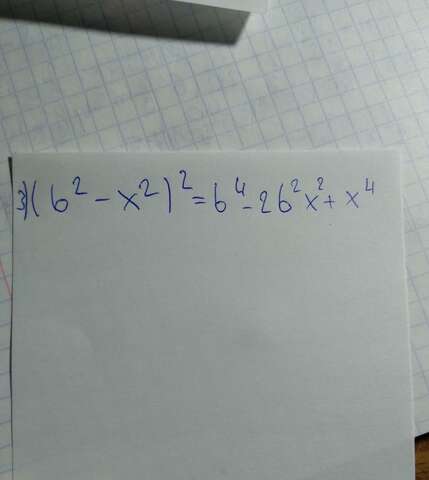 3) (b² - x²)² = b⁴ - 2b²x² + x⁴